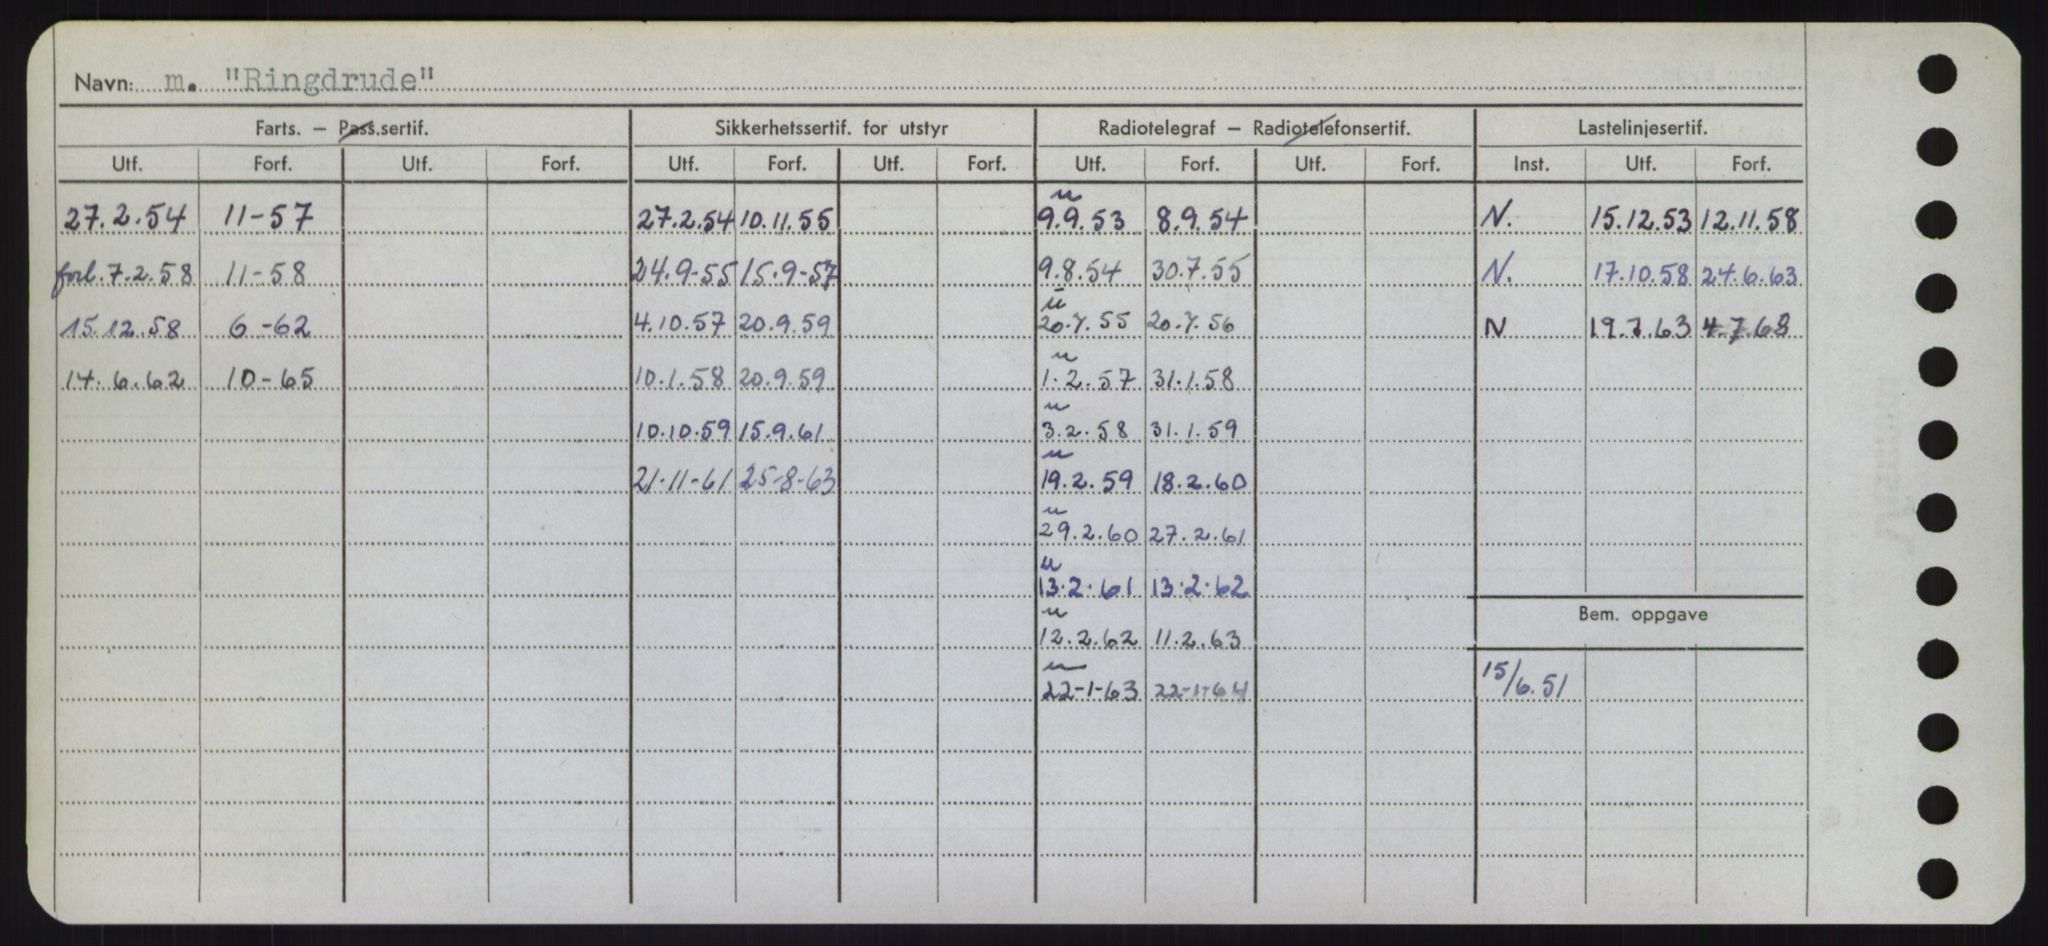 Navn: m. "Ringdrude"
Farts. — Pass.sertif. Sikkerhetssertif. for utstyr Radiotelegraf — Radiotelefonsertif. Lastelinjesertif.
Utf. Forf. Utf. Forf. Utf. Forf. Utf. Forf. Utf. Forf. Utf. Forf. Inst. Utf. Forf.
u
27.2.54 11-57 27.2.54 10.11.55 9.9.53 8.9.54 N. 15.12.53 12.11.58
forl. 7.2.58 11-58 24.9-55 15.9-57 9.8.54 30.7.55 N. 17.10.58 24.6.63
u
15.12.58 6-62 4.10.57 20.9.59 20.7.55 20.7.56 N 19.7.63 4.7.68
u
14.6.62 10-65 10.1.58 20.9.59 1.2.57 31.1.58
u
10.10.59 15.9.61 3.2.58 31.1.59
u
21-11-61 25-8-63 19.2.59 18.2.60
u
29.2.60 27.2.61
u
13.2.61 13.2.62
Bem. oppgave
u
12.2.62 11.2.63
u
22-1-63 22-1-64 15/6.51